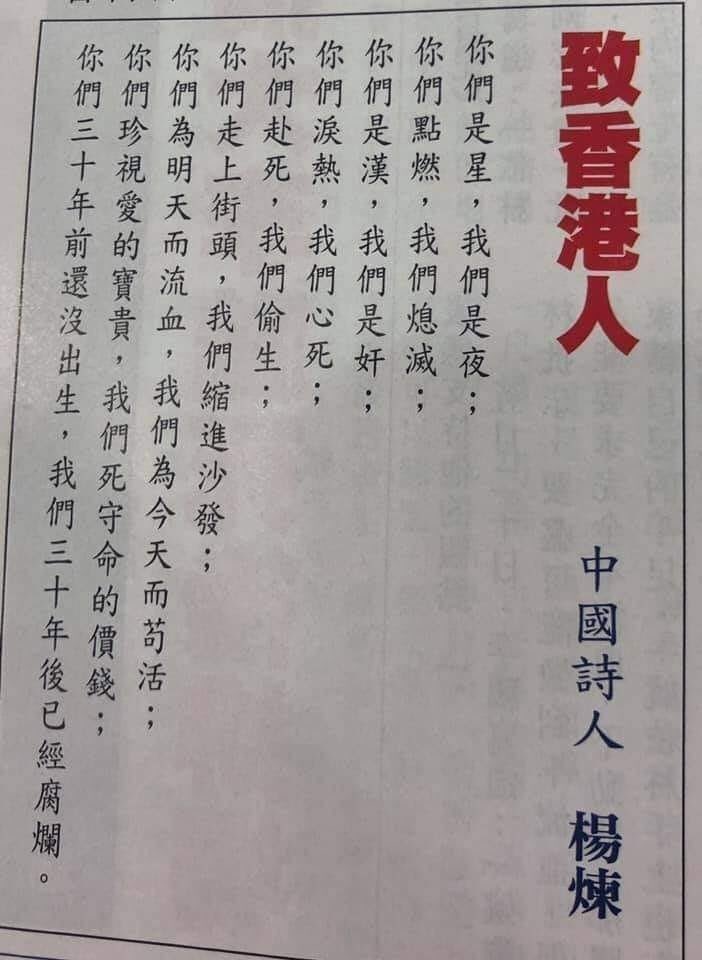 致香港人
中國詩人 楊煉
你們是星，我們是夜；
你們點燃，我們熄滅；
你們是漢，我們是奸；
你們淚熱，我們心死；
你們赴死，我們偷生；
你們走上街頭，我們縮進沙發；
你們為明天而流血，我們為今天而苟活；
你們珍視愛的寶貴，我們死守命的價錢；
你們三十年前還沒出生，我們三十年後已經腐爛。